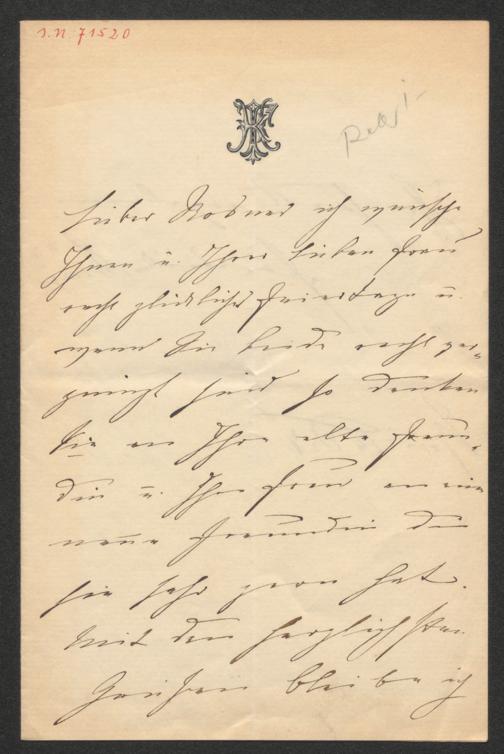 J.N. 71520
Lieber Rosner ich wünsche
Ihnen u. Ihrer lieben Frau
recht glückliche Feiertage u.
wenn Sie beide recht ver-
gnügt seid so denken
Sie an Ihre alte Freun-
din u. Ihre Frau an eine
neue Freundin die
sie sehr gern hat.
Mit den herzlichsten
Grüßen bleibe ich